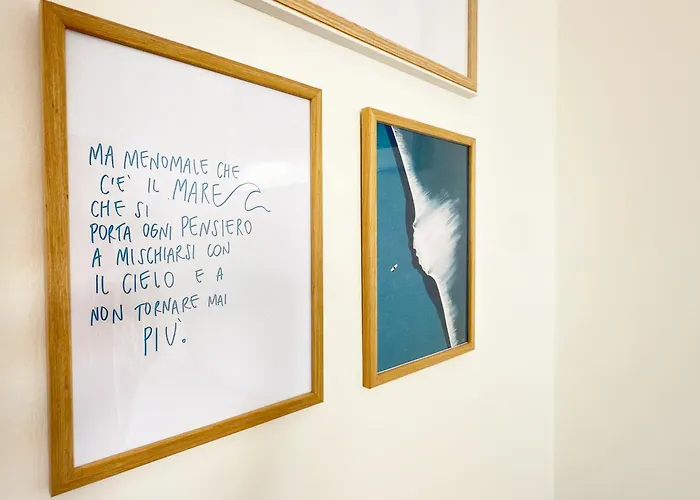 MA MENOMALE CHE
C'E' IL MARE
CHE SI
PORTA OGNI PENSIERO
A MISCHIARSI CON
IL CIELO E A
NON TORNARE MAI
PIU'.